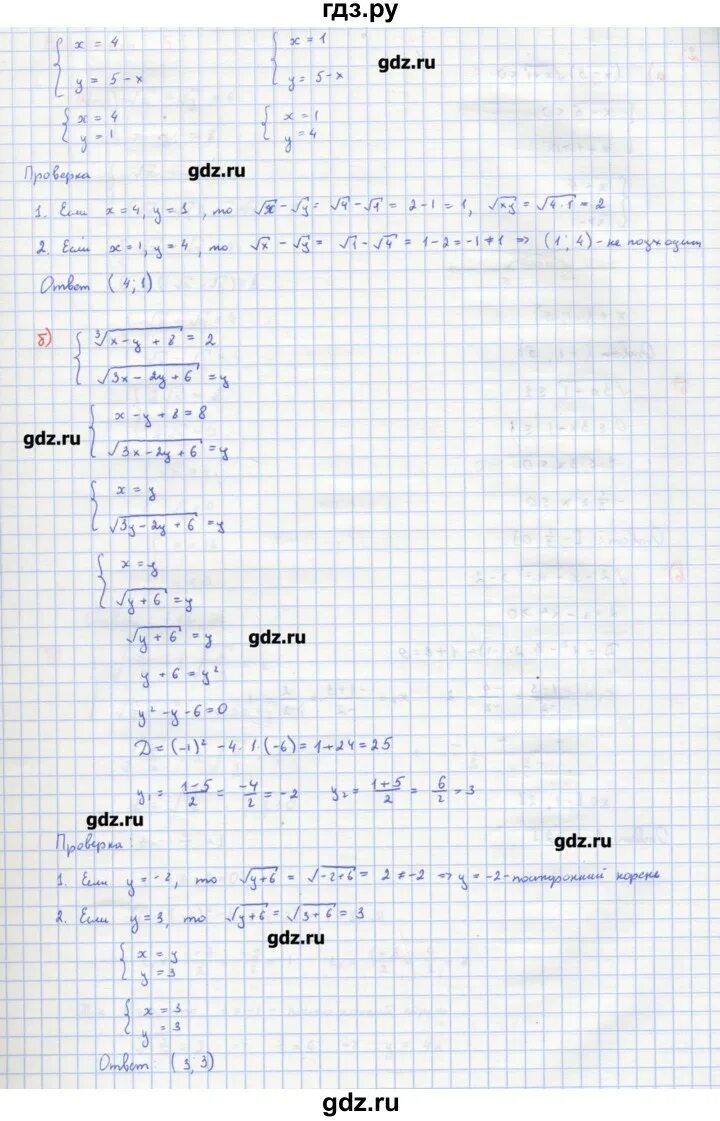 гдз.ру
x = 4 x = 1
y = 5 - x y = 5 - x
gdz.ru
x = 4 x = 1
y = 1 y = 4
Проверка
gdz.ru
1. Если x = 4, y = 1, то √x - √y = √4 - √1 = 2 - 1 = 1, √xy = √4·1 = 2
2. Если x = 1, y = 4, то √x - √y = √1 - √4 = 1 - 2 = -1 ≠ 1 ⇒ (1; 4) - не подходит
Ответ (4; 1)
б) ∛x - y + 8 = 2
√3x - 2y + 6 = y
x - y + 8 = 8
gdz.ru
√3x - 2y + 6 = y
x = y
√3y - 2y + 6 = y
x = y
√y + 6 = y
√y + 6 = y gdz.ru
y + 6 = y²
y² - y - 6 = 0
D = (-1)² - 4·1·(-6) = 1 + 24 = 25
y₁ = 1-5/2 = -4/2 = -2 y₂ = 1+5/2 = 6/2 = 3
gdz.ru
Проверка: gdz.ru
1. Если y = -2, то √y+6 = √-2+6 = 2 ≠ -2 ⇒ y = -2 - посторонний корень
2. Если y = 3, то √y+6 = √3+6 = 3
gdz.ru
x = y
y = 3
x = 3
y = 3
Ответ: (3; 3)
gdz.ru